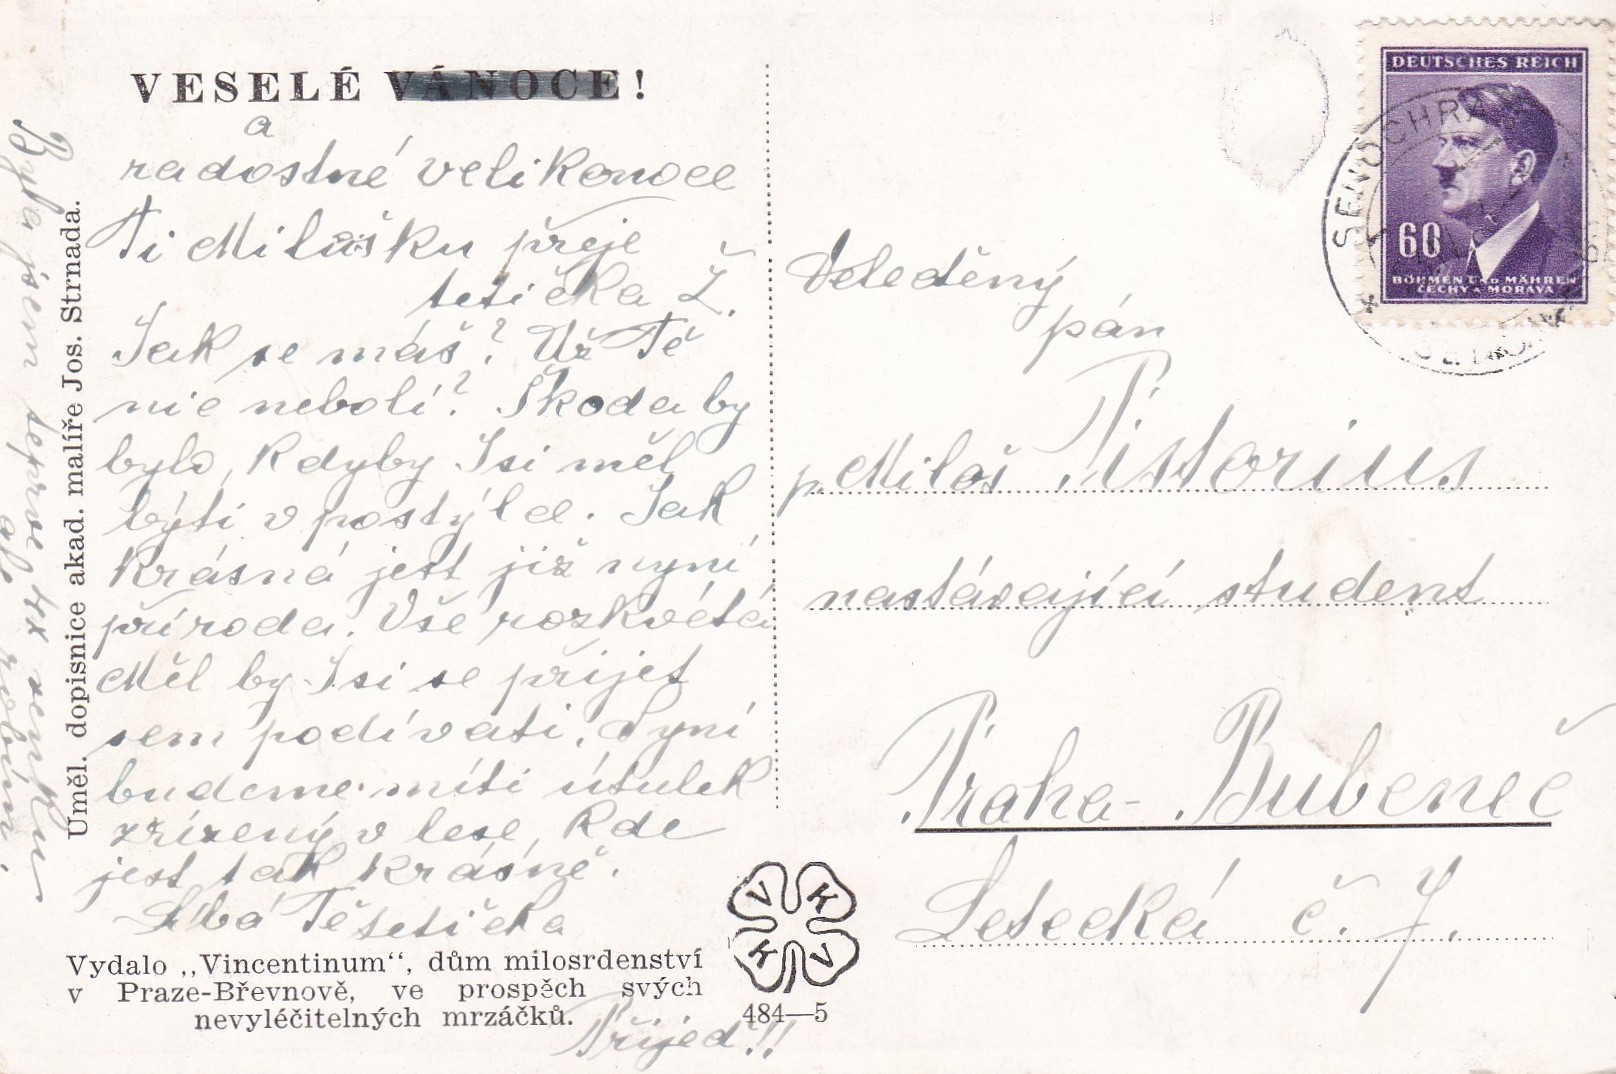 VESELÉ VÁNOCE!
a
radostné velikonoce
Ti Milušku přeje
tetička Ž.
Jak se máš? Už Tě
nic nebolí? Škoda by
bylo, kdyby Jsi měl
býti v postýlce. Jak
krásná jest již nyní
příroda. Vše rozkvétá
Měl by Jsi se přijet
sem podívati. Nyní
budeme míti útulek
zřízený v lese, kde
jest tak krásně.
Líbá Tě tetička
Přijeď!!
Byla jsem teprve 4x venku
Uměl. dopisnice akad. malíře Jos. Strnada.
Vydalo ,,Vincentinum“, dům milosrdenství
v Praze-Břevnově, ve prospěch svých
nevyléčitelných mrzáčků.
V K K V
484—5
DEUTSCHES REICH
60
BÖHMEN UND MÄHREN
ČECHY A MORAVA
SENOHRA
Veleděný
pán
p. Miloš Pistorius
nastávající student
Praha - Bubeneč
Letecká č. 7.